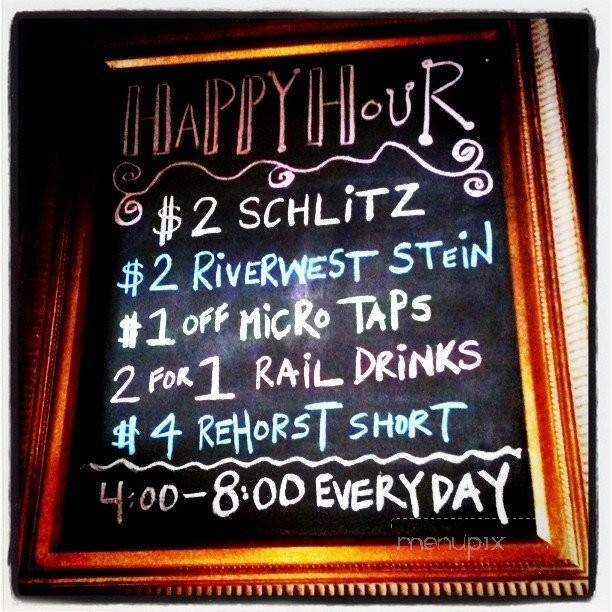 HAPPY HOUR
$2 SCHLiTZ
$2 RiVERWEST STEiN
$1 OFF MiCRO TAPS
2 FOR 1 RAiL DRiNKS
$4 REHORST SHORT
4:00-8:00 EVERYDAY
menupix